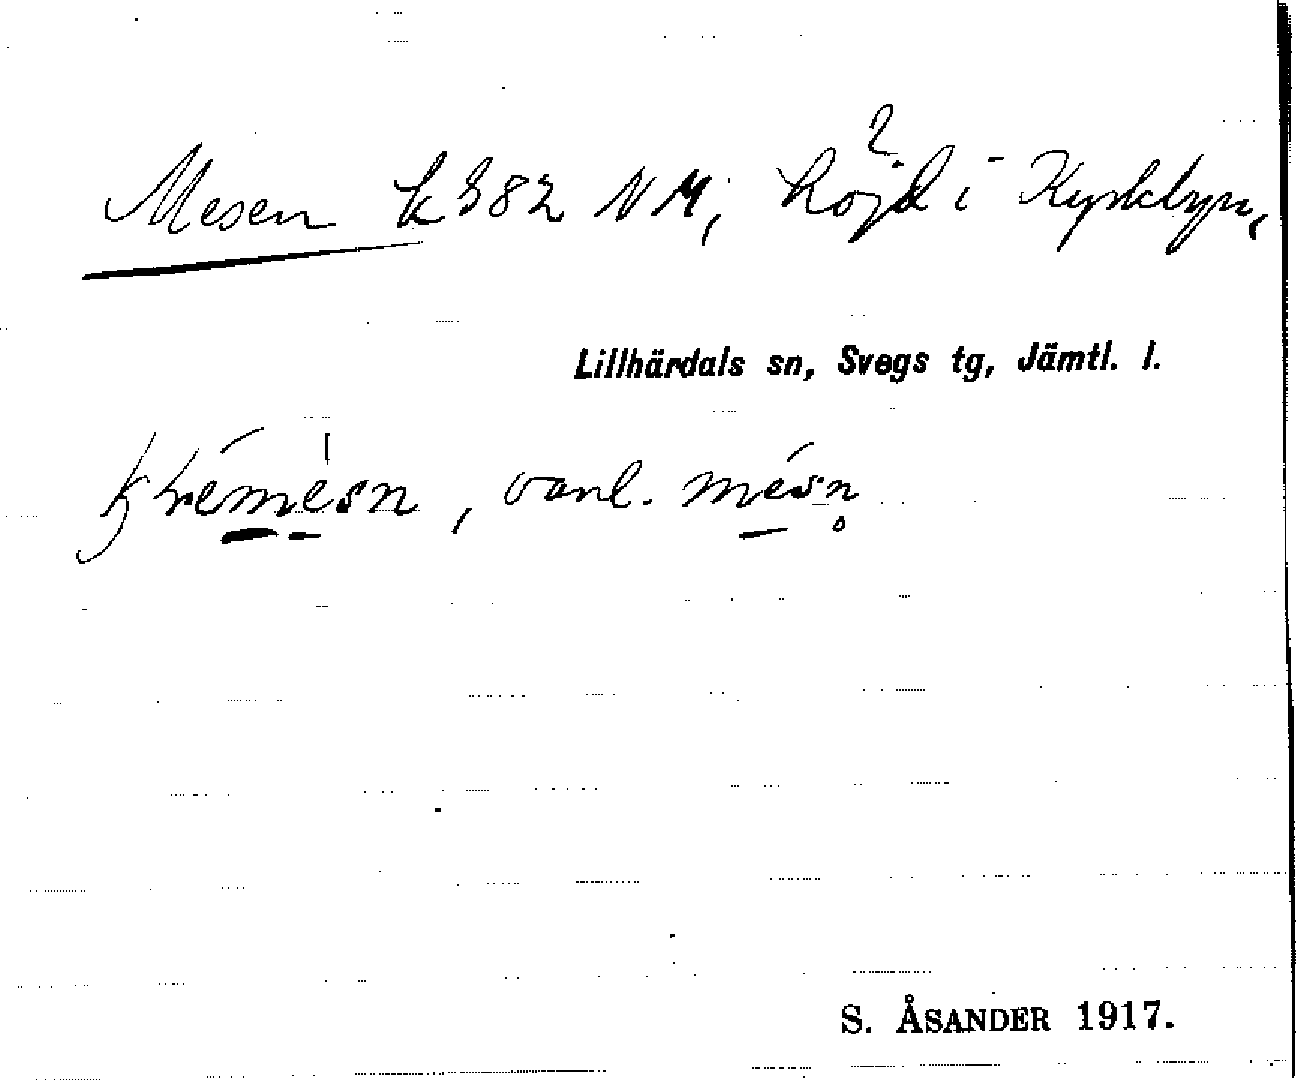 Mesen k 382 NM, höjd i Kyrkbyn,
Lillhärdals sn, Svegs tg, Jämtl. l.
, vanl. mésn̥
S. ÅSANDER 1917.